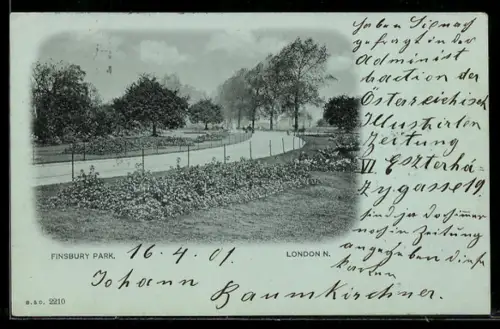 haben Signach
gefragt in der
Administ
ration der
Österreichisch
Illustrirten
Zeitung
VI. Eszterhá-
zygasse 19.
sind ja doch immer
noch in Zeitung
angegeben diese
karten
FINSBURY PARK,
LONDON N.
16-4.01
Johann Baumkirchner.
B. & D. 2210